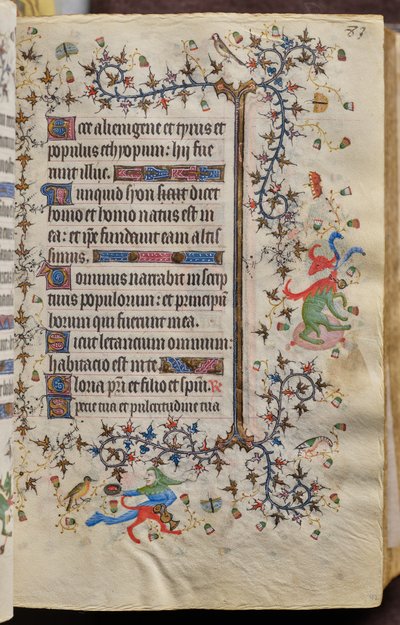 83
Ecce alienigene et tyrus et
populus ethyopum: hii fue
runt illic.
Nunquid syon sicut dicet
homo et homo natus est in
ea: et ip̅e fundauit eam altis
simus.
Dominus narrabit in scrip
turis populorum: et principū
horum qui fuerunt in ea.
Sicut letancium omnium:
habitacio est in te.
Gloria pr̄i et filio et spūi. R̄
Specie tua et pulcritudine tua